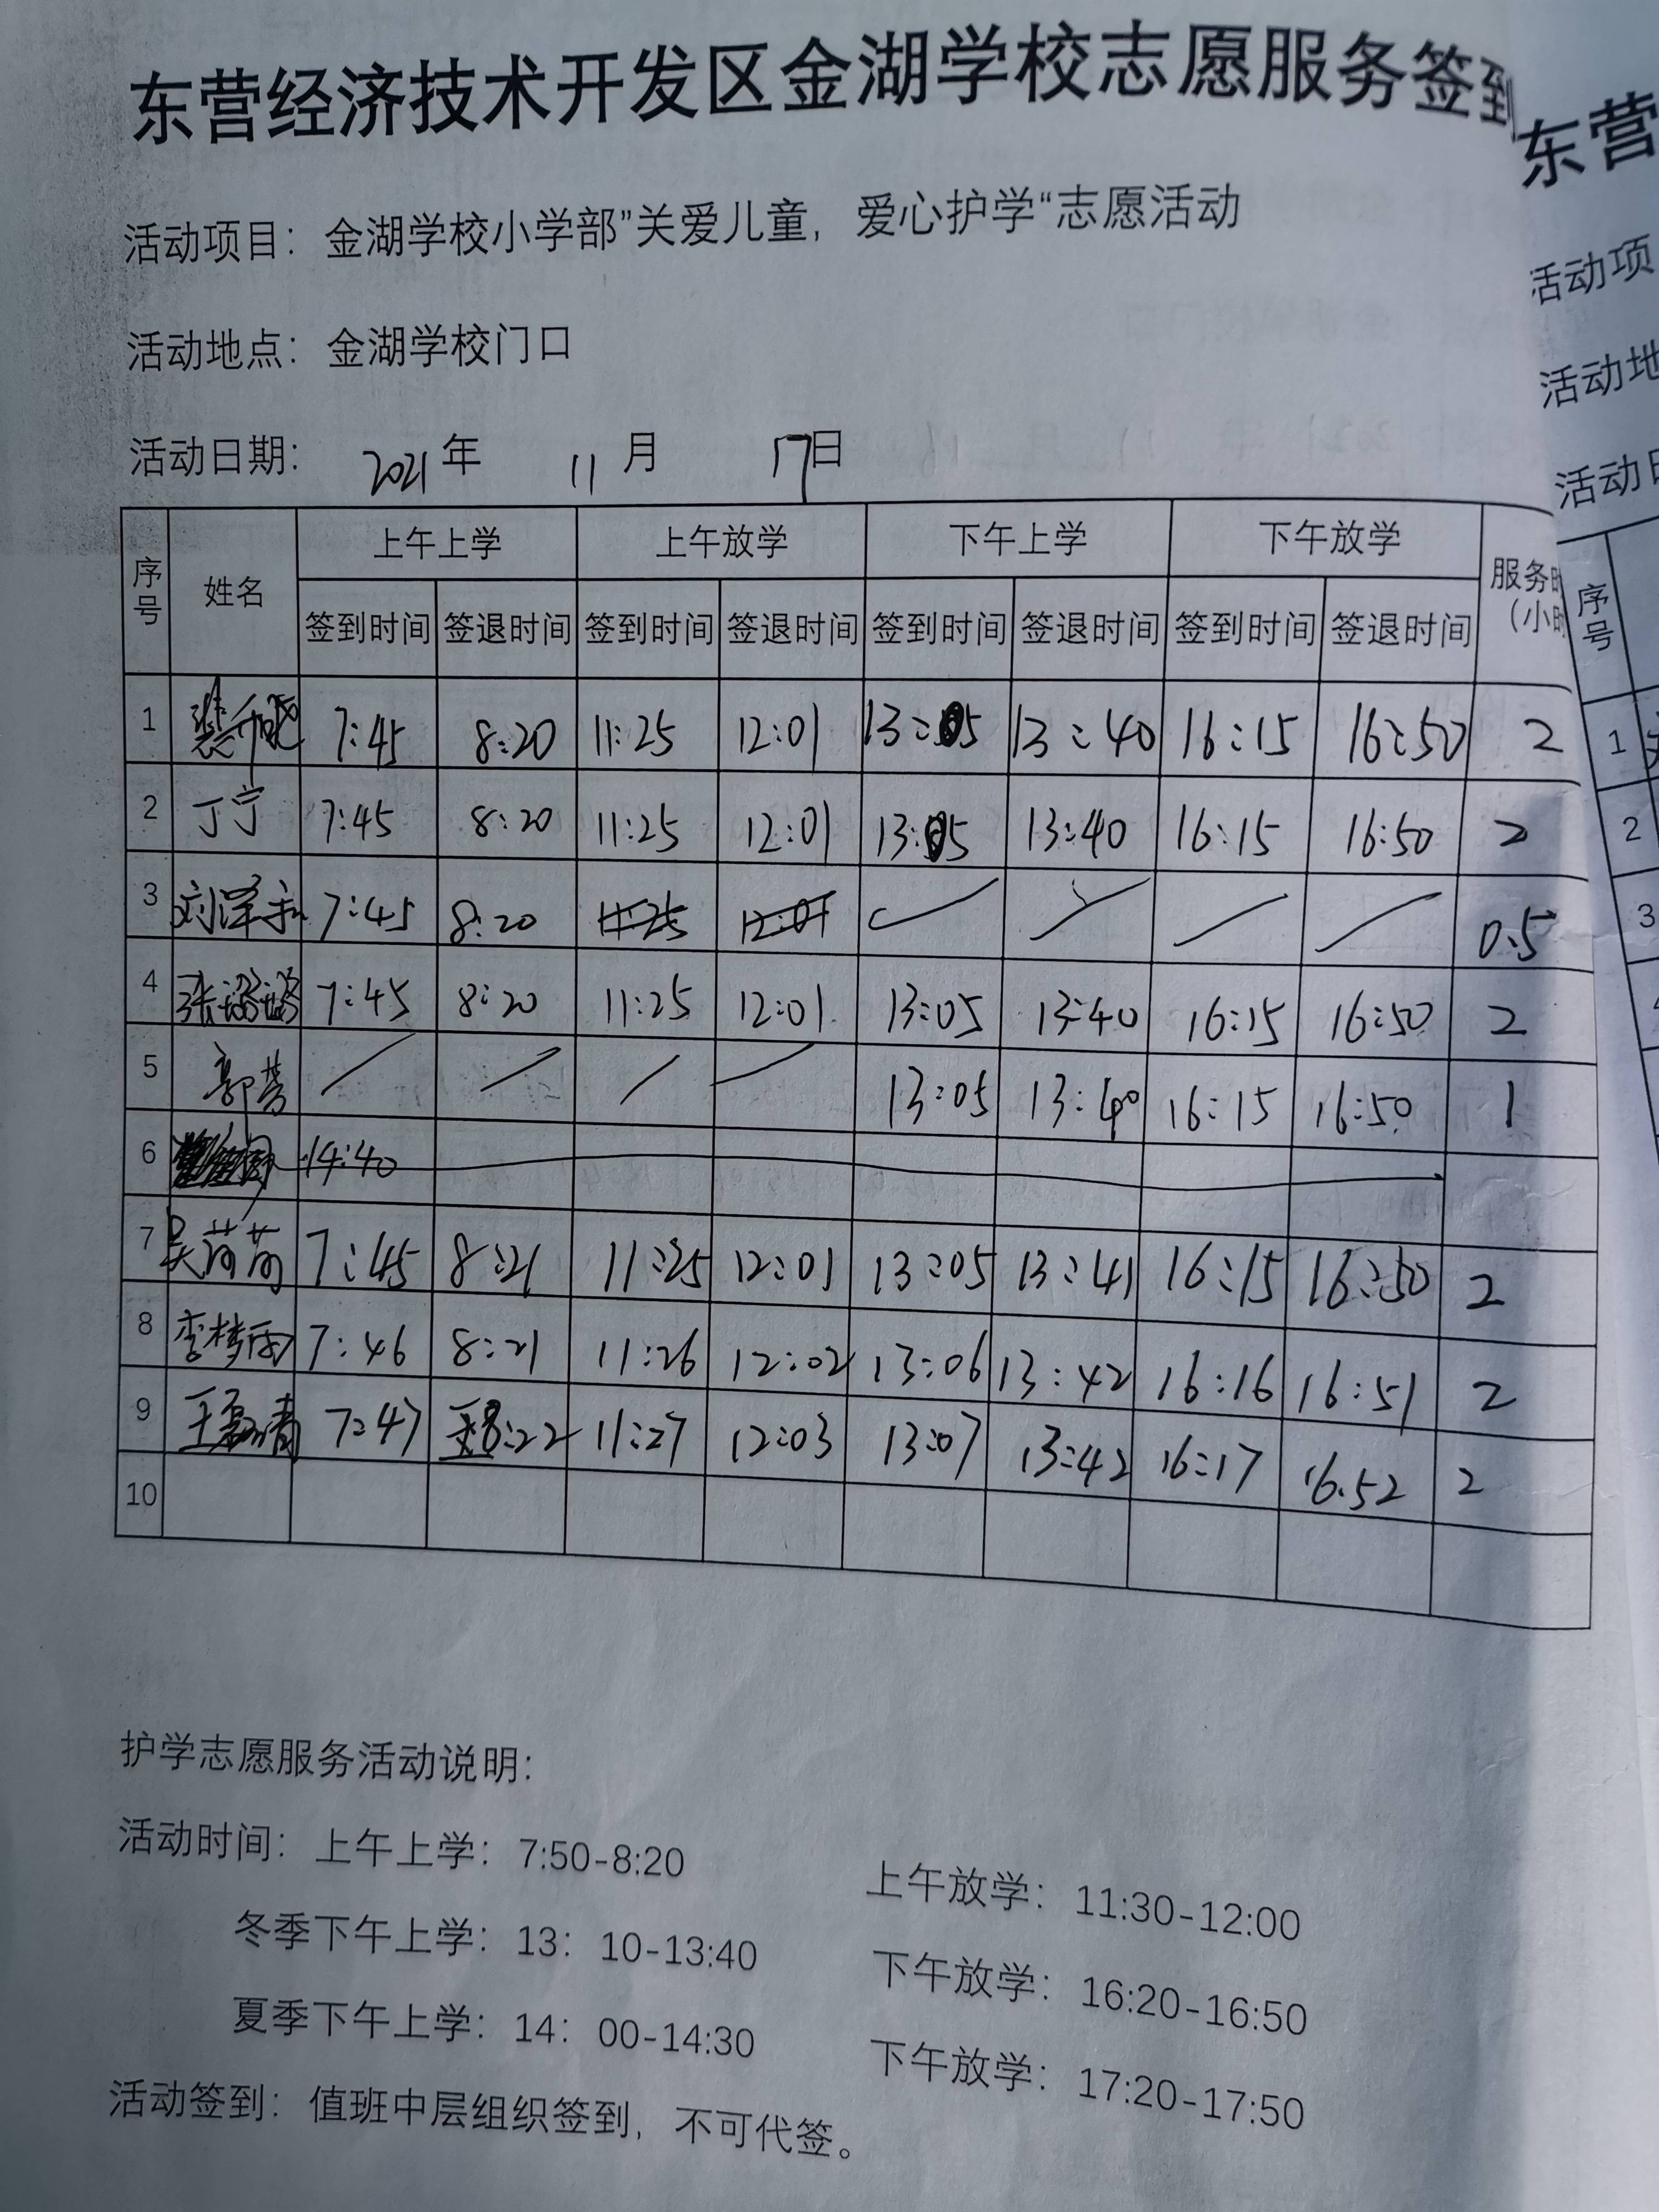 东营经济技术开发区金湖学校志愿服务签到
活动项目：金湖学校小学部”关爱儿童，爱心护学“志愿活动
活动地点：金湖学校门口
活动日期： 2021 年 11 月 17 日
序号 姓名 上午上学 上午放学 下午上学 下午放学 服务时（小时
签到时间 签退时间 签到时间 签退时间 签到时间 签退时间 签到时间 签退时间
1 7:45 8:20 11:25 12:01 13:05 13:40 16:15 16:50 2
2 丁宁 7:45 8:20 11:25 12:01 13:05 13:40 16:15 16:50 2
3 7:45 8:20 11:25 12:01 0.5
4 7:45 8:20 11:25 12:01 13:05 13:40 16:15 16:50 2
5 13:05 13:40 16:15 16:50 1
6 14:40
7 吴荷荷 7:45 8:21 11:25 12:01 13:05 13:41 16:15 16:50 2
8 李梦雨 7:46 8:21 11:26 12:02 13:06 13:42 16:16 16:51 2
9 7:47 8:22 11:27 12:03 13:07 13:42 16:17 16.52 2
10
护学志愿服务活动说明：
活动时间：上午上学：7:50-8:20 上午放学：11:30-12:00
冬季下午上学：13：10-13:40 下午放学：16:20-16:50
夏季下午上学：14：00-14:30 下午放学：17:20-17:50
活动签到：值班中层组织签到，不可代签。
东营
活动项
活动地
活动日
序号
1
2
3